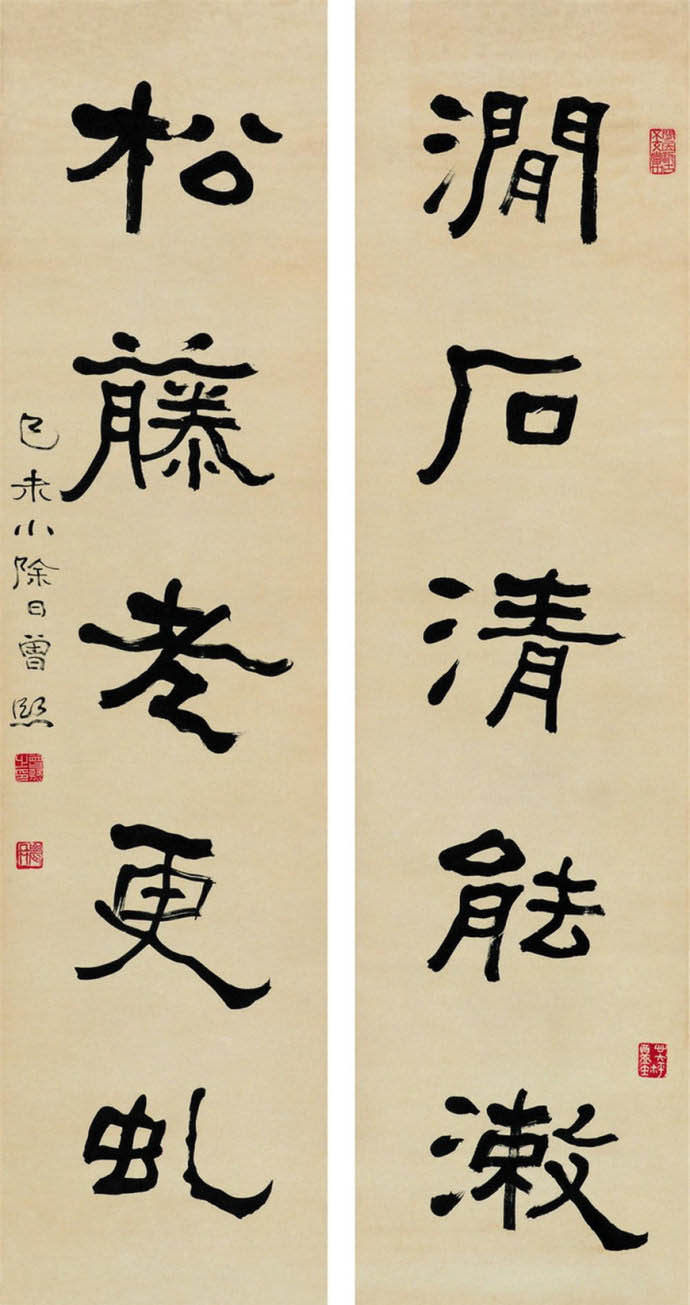 澗石清能漱
松藤老更虬
己未小除日曾熙